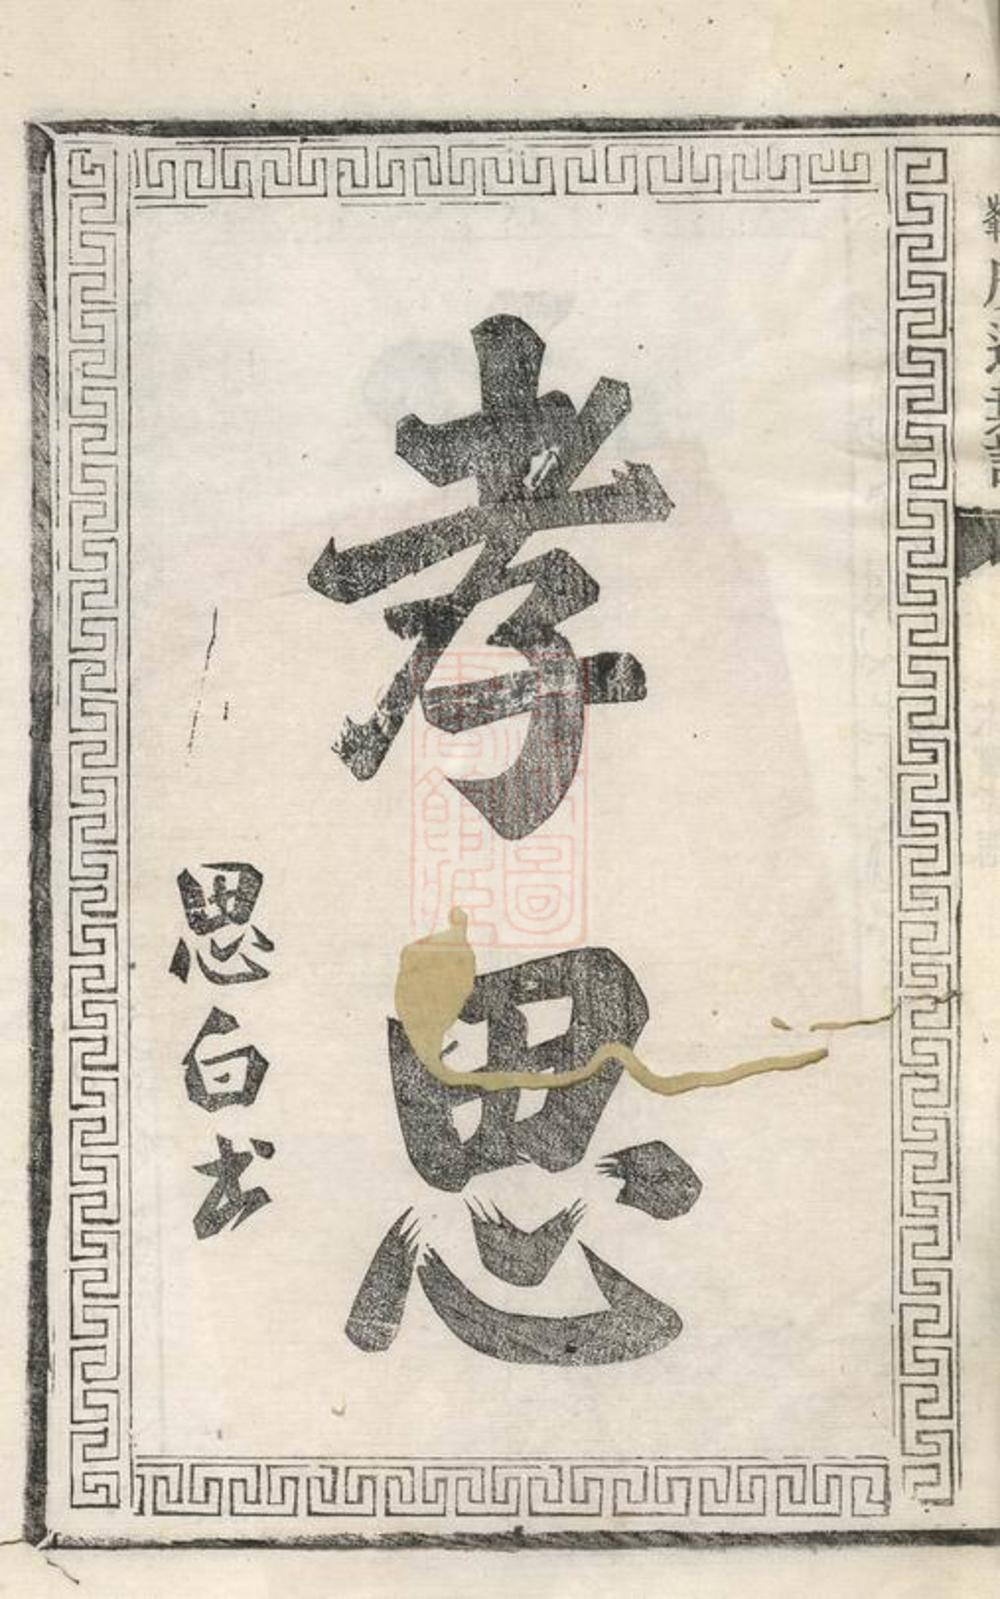 孝思
思白书